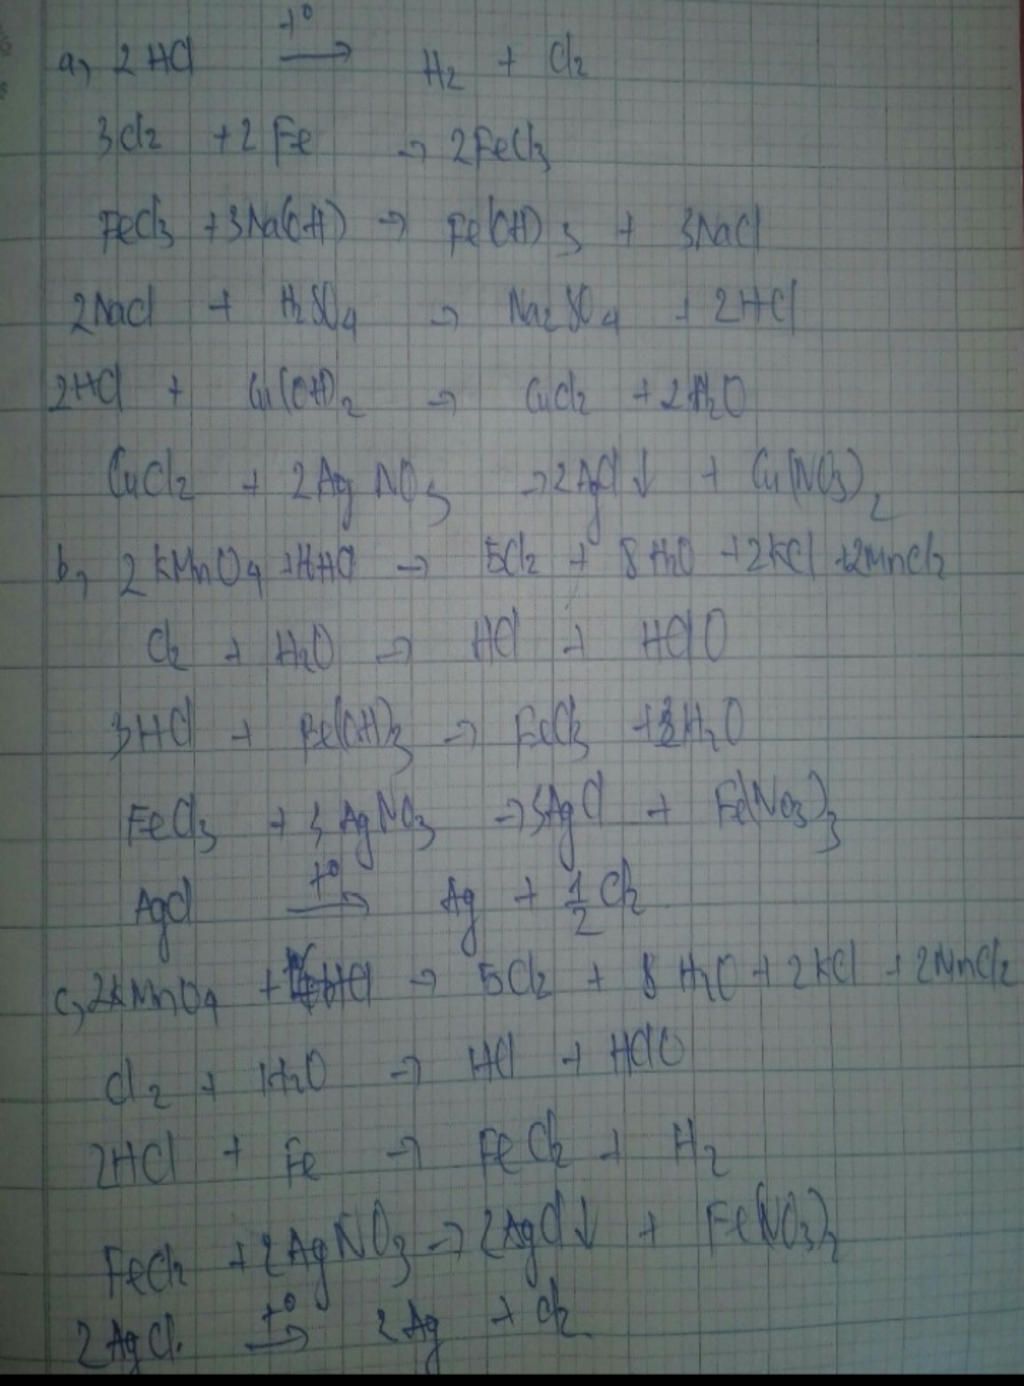 a, 2HCl t° → H2 + Cl2
3Cl2 + 2Fe → 2FeCl3
FeCl3 + 3Na(OH) → Fe(OH)3 + 3NaCl
2NaCl + H2SO4 → Na2SO4 + 2HCl
2HCl + Cu(OH)2 → CuCl2 + 2H2O
CuCl2 + 2AgNO3 → 2AgCl ↓ + Cu(NO3)2
b, 2KMnO4 + HCl → 5Cl2 + 8H2O + 2KCl + 2MnCl2
Cl2 + H2O → HCl + HClO
3HCl + Fe(OH)3 → FeCl3 + 3H2O
FeCl3 + 3AgNO3 → 3AgCl + Fe(NO3)3
AgCl t° → Ag + 1/2 Cl2
c, 2KMnO4 + HCl → 5Cl2 + 8H2O + 2KCl + 2MnCl2
Cl2 + H2O → HCl + HClO
2HCl + Fe → FeCl2 + H2
FeCl2 + 2AgNO3 → 2AgCl ↓ + Fe(NO3)2
2AgCl t° → 2Ag + Cl2